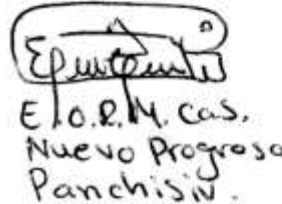 E.O.R.M. Cas.
Nuevo Progreso
Panchisiv.